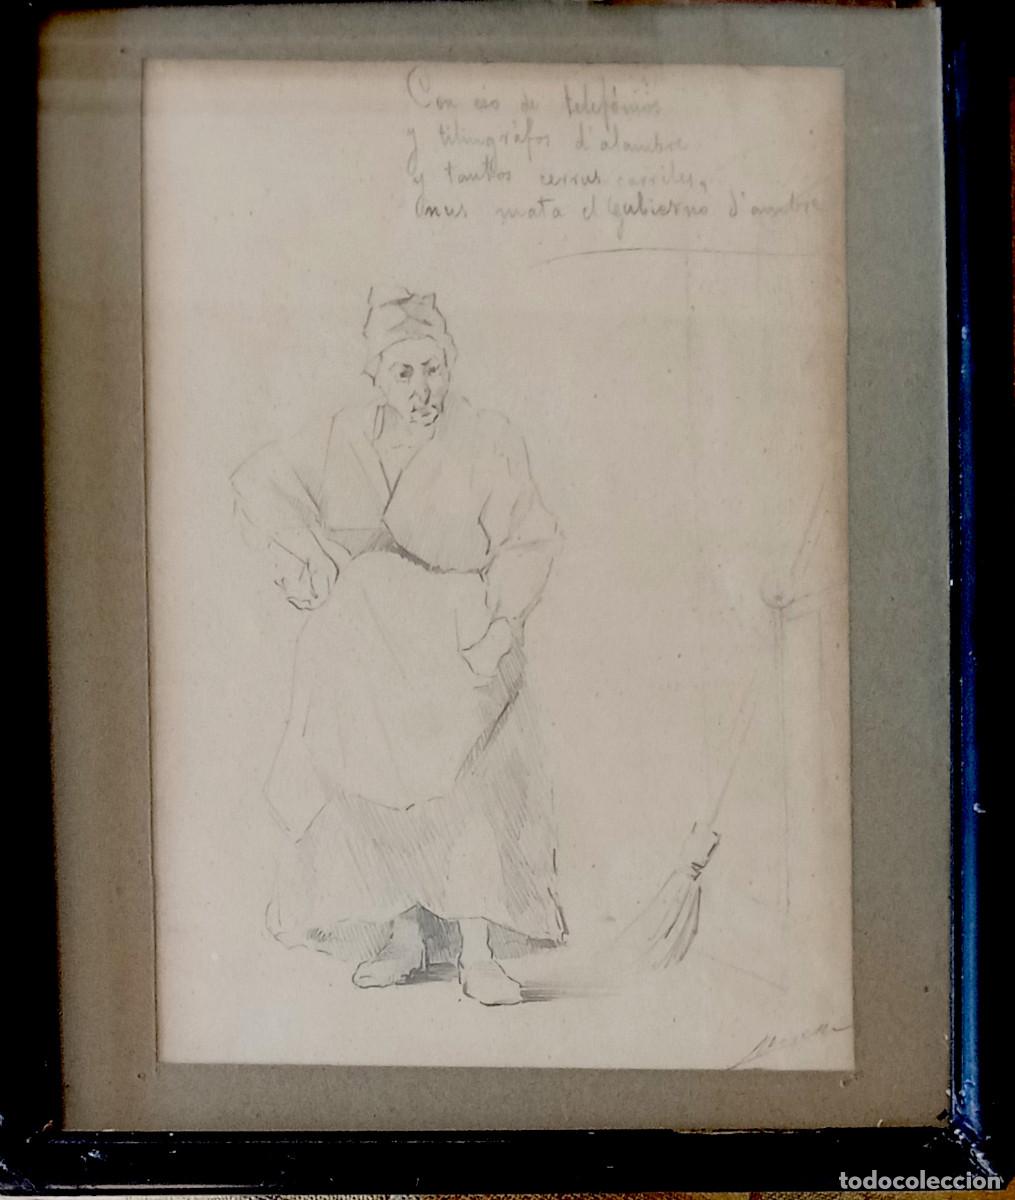 Con eso de telefónios
y tilingráfos d'alambre
y tantos cerrus carriles,
nus mata el Gubierno d'ambre
todocoleccion